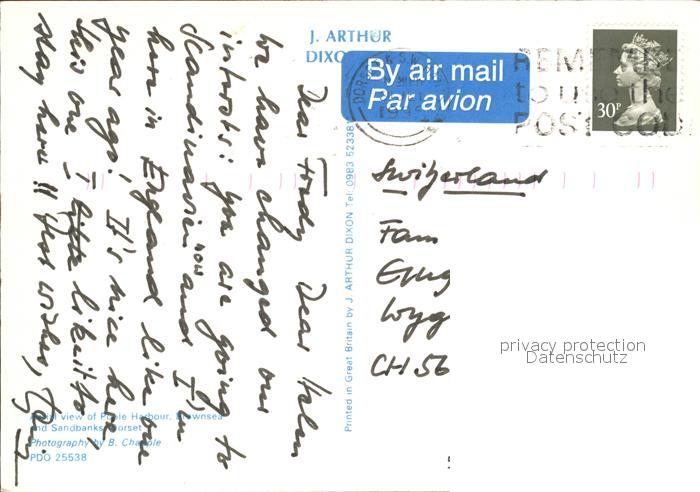 J. ARTHUR
DIXON
By air mail
Par avion
30P
REMEMBER
to use the
POSTCODE
Switzerland
Fam
CH 56
privacy protection
Datenschutz
Dear Dear Helen
we have changed our
you are going to
Scandinavien now and I'm
here in England like one
year ago! It's nice here,
this one I like to
stay here!!! Best wishes,
Printed in Great Britain by J. ARTHUR DIXON Tel: 0983 523381
Aerial view of Poole Harbour, Brownsea
and Sandbanks, Dorset
Photography by B. Chapple
PDO 25538